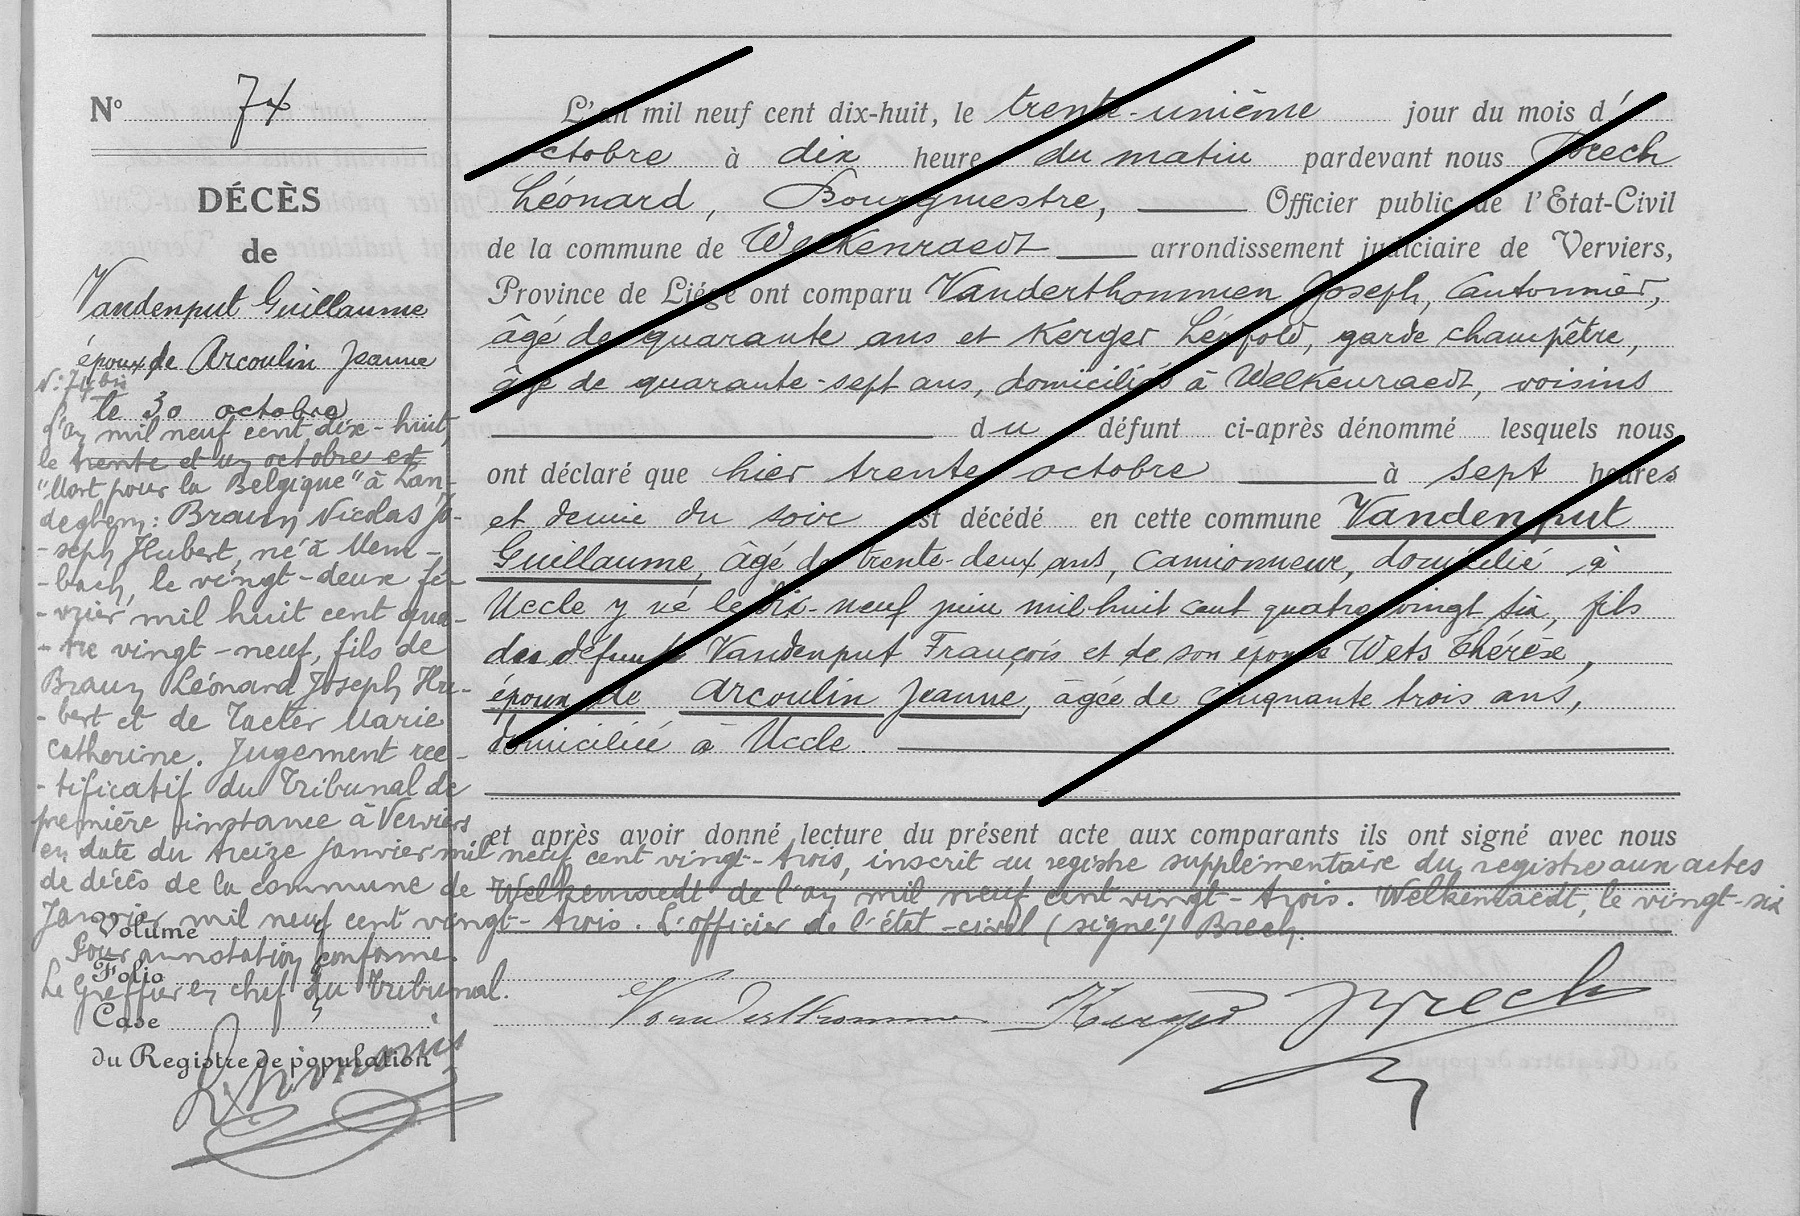 N° 74
DÉCÈS
de
Vandenput Guillaume
époux de Arcoulin Jeanne
le 30 octobre
N: 74 bis
L'an mil neuf cent dix-huit,
le trente et un octobre est
"Mort pour la Belgique" à Lan-
deghem: Braun Nicolas Jo-
-seph Hubert, né à Mem-
-bach, le vingt-deux fé-
-vrier mil huit cent qua-
-tre vingt-neuf, fils de
Braun Léonard Joseph Hu-
-bert et de Taeter Marie
Catherine. Jugement rec-
-tificatif du Tribunal de
première instance à Verviers
en date du treize janvier mil neuf cent vingt-trois, inscrit au registre supplémentaire du registre aux actes
de décès de la commune de Welkenraedt de l'an mil neuf cent vingt-trois. Welkenraedt, le vingt-six
Janvier mil neuf cent vingt-trois. L'officier de l'état-civil (signé) Brech.
Pour annotation conforme.
Le Greffier en chef du Tribunal.
Volume
Folio
Case
du Registre de population
L'an mil neuf cent dix-huit, le trente-unième jour du mois d'
octobre à dix heure du matin pardevant nous Brech
Léonard, Bourgmestre, Officier public de l'Etat-Civil
de la commune de Welkenraedt arrondissement judiciaire de Verviers,
Province de Liége ont comparu Vanderthommen Joseph, Cantonnier,
âgé de quarante ans et Kerger Léopold, garde champêtre,
âgé de quarante-sept ans, domiciliés à Welkenraedt, voisins
du défunt ci-après dénommé lesquels nous
ont déclaré que hier trente octobre à sept heures
et demie du soir est décédé en cette commune Vandenput
Guillaume, âgé de trente-deux ans, camionneur, domicilié à
Uccle y né le dix-neuf juin mil huit cent quatre vingt six, fils
des défunts Vandenput François et de son épouse Wets Thérèse,
époux de Arcoulin Jeanne, âgée de cinquante trois ans,
domiciliée à Uccle
et après avoir donné lecture du présent acte aux comparants ils ont signé avec nous
Vanderthommen Kerger Brech